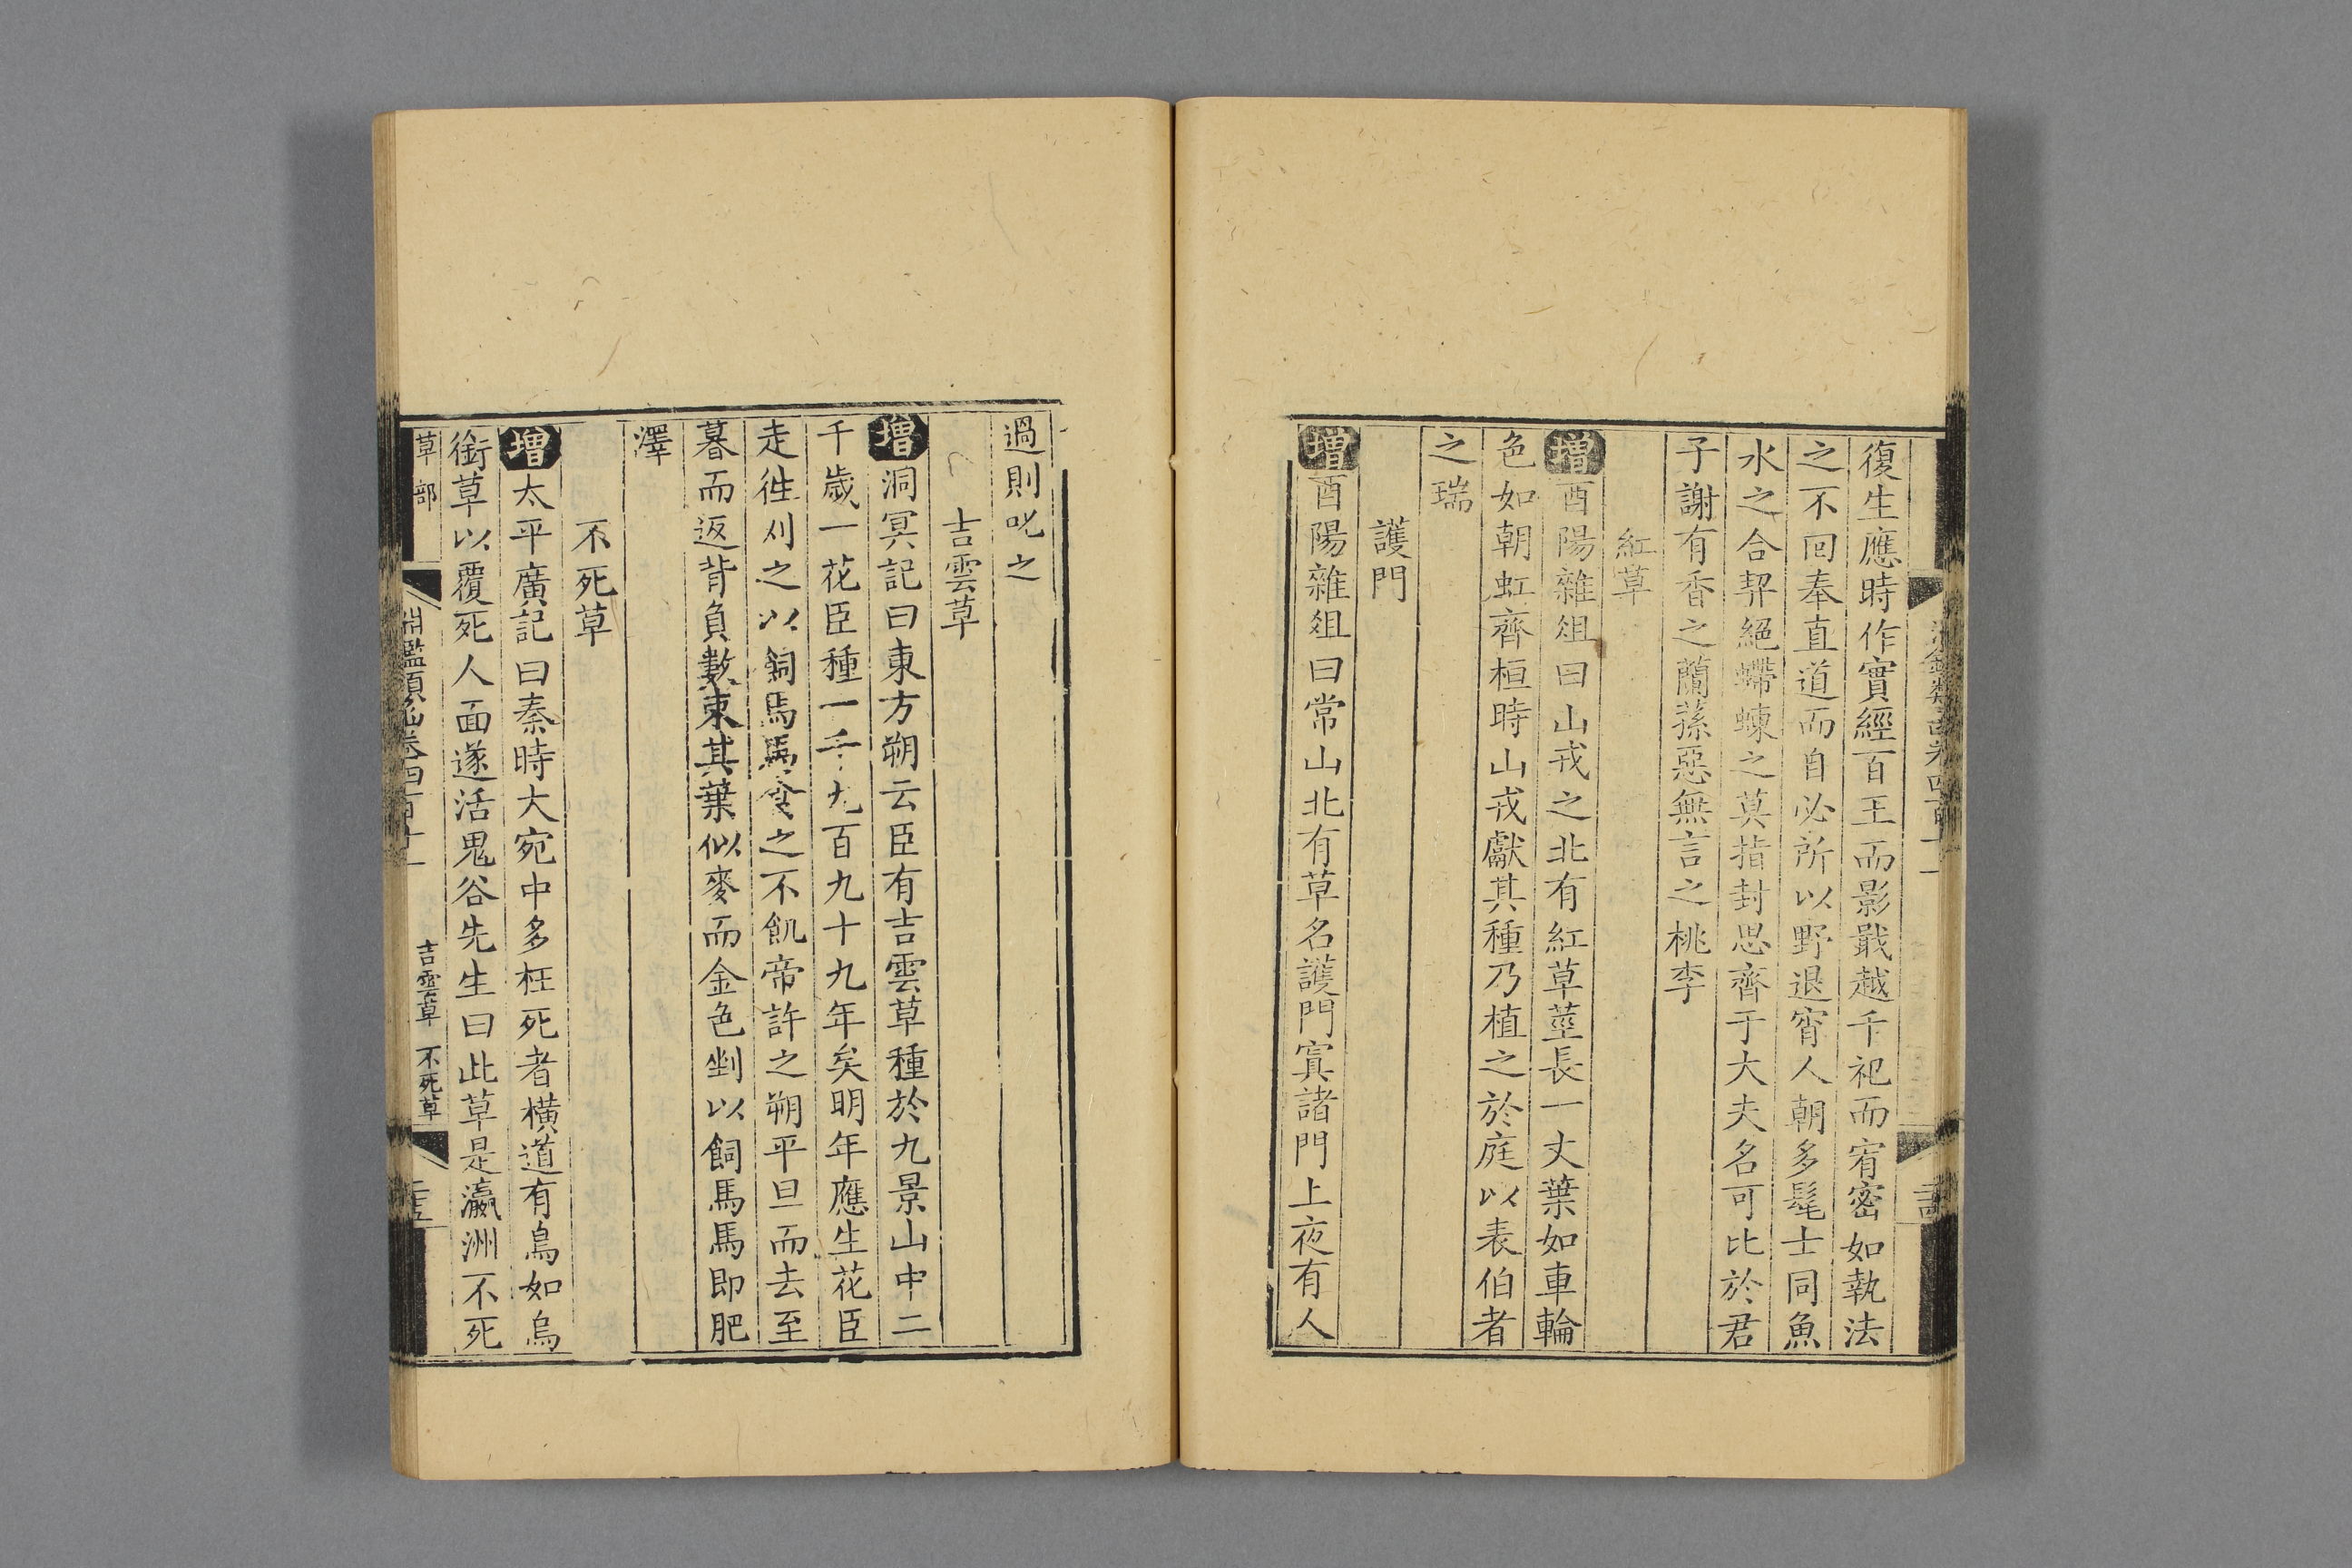 復生應時作實經百王而影戢越千祀而宥密如執法
之不回奉直道而自必所以野退宵人朝多髦士同魚
水之合契絕螮蝀之莫指封思齊于大夫名可比於君
子謝有香之蘭蓀惡無言之桃李
紅草
增酉陽雜俎曰山戎之北有紅草莖長一丈葉如車輪
色如朝虹齊桓時山戎獻其種乃植之於庭以表伯者
之瑞
護門
增酉陽雜俎曰常山北有草名護門寘諸門上夜有人
過則叱之
吉雲草
增洞冥記曰東方朔云臣有吉雲草種於九景山中二
千歲一花臣種一千九百九十九年矣明年應生花臣
走徃刈之以飼馬馬食之不飢帝許之朔平旦而去至
暮而返背負數束其葉似麥而金色剉以飼馬馬即肥
澤
不死草
增太平廣記曰秦時大宛中多枉死者橫道有鳥如烏
銜草以覆死人面遂活鬼谷先生曰此草是瀛洲不死
草部
淵鑑類函卷四百十一
吉雲草 不死草